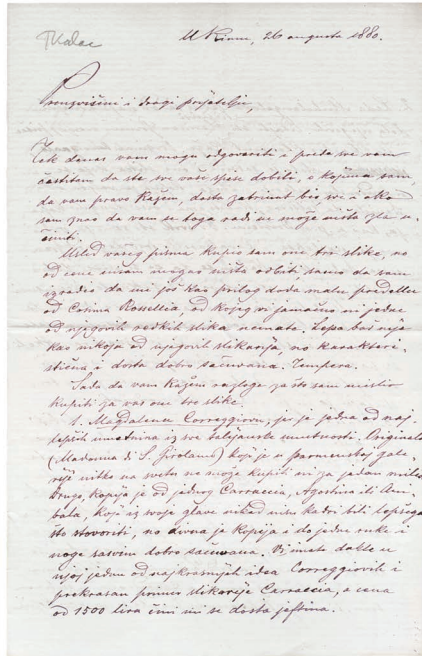 Tkalac
U Rimu, 26 augusta 1880.
Preuzvišeni i dragi prijatelju,
Tek danas vam mogu odgovoriti i pre sve vam
čestitam da ste sve vaše spise dobili, o kojima sam,
da vam pravo kažem, dosta zabrinut bio sve i ako
sam znao da vam se toga radi ne može ništa zla u-
činiti.
Usled vašeg pisma kupio sam one tri slike, no
od cene nisam mogao ništa odbiti samo da sam
izradio da mi još kao prilog doda malu predellu
od Cosima Rossellia, od kojeg vi jamačno ni jedne
od njegovih redkih slika nemate. Lepa baš nije
kao nikoja od njegovih slikarija, no karakteri-
stična i dosta dobro sačuvana. Tempera.
Sada da vam kažem razloge zašto sam mislio
kupiti za vas one tri slike.
1. Magdalenu Correggiovu, jer je jedna od naj-
lepših umotvorina iz sve talijanske umetnosti. Original
(Madonna di S. Girolamo) koji je u parmenskoj gale-
riji nitko na svetu ne može kupiti ni za jedan milion
Drugo, kopija je od jednog Carraccia, Agostina ili Ani-
bala, koji iz svoje glave nikad nisu kadri biti lepšega
što stvoriti, no divna je kopija i do jedne ruke i
noge sasvim dobro sačuvana. Vi imate dakle u
njoj jednu od najkrasnijih idea Correggiovih i
prekrasan primer slikarije Carraccia, a cena
od 1500 lira čini mi se dosta jeftina.